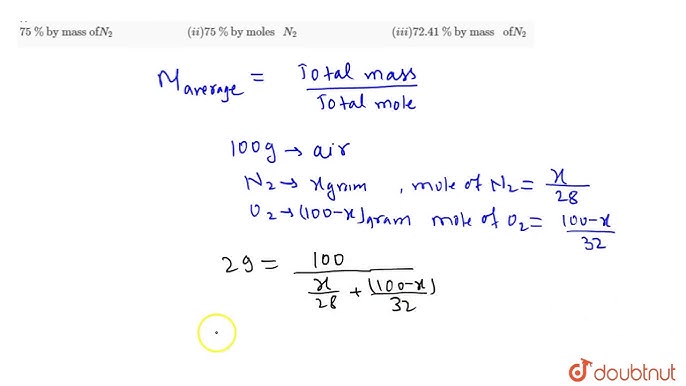 75 % by mass ofN₂ (ii)75 % by moles N₂ (iii)72.41 % by mass ofN₂
M average = Total mass / Total mole
100g → air
N₂ → x gram , mole of N₂ = x / 28
O₂ → (100-x) gram mole of O₂ = 100-x / 32
29 = 100 / x/28 + (100-x)/32
doubtnut